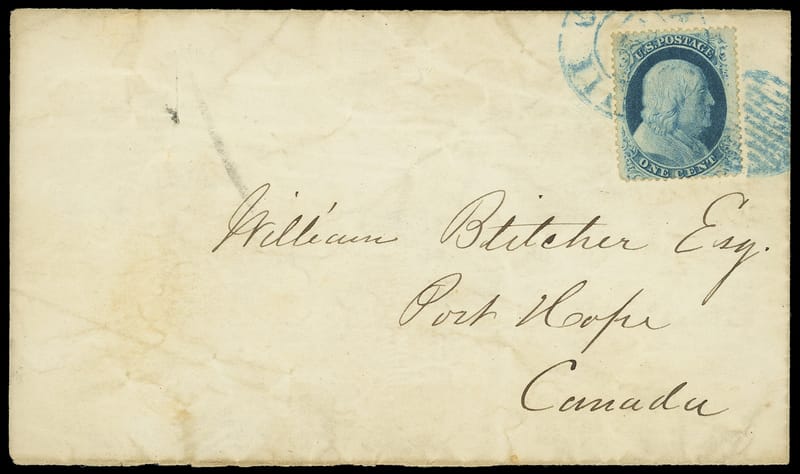 U.S. POSTAGE
ONE CENT
William Blitcher Esq.
Port Hope
Canada